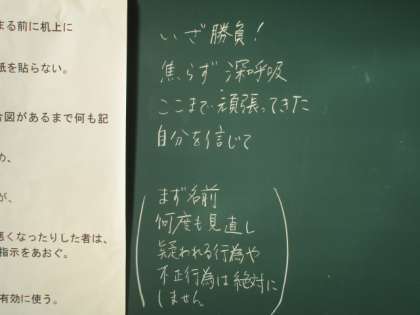 まる前に机上に
紙を貼らない。
図があるまで何も記
め、
が、
悪くなったりした者は、
指示をあおぐ。
有効に使う。
いざ勝負！
焦らず深呼吸
ここまで頑張ってきた
自分を信じて
(まず名前
何度も見直し
疑われる行為や
不正行為は絶対に
しません)